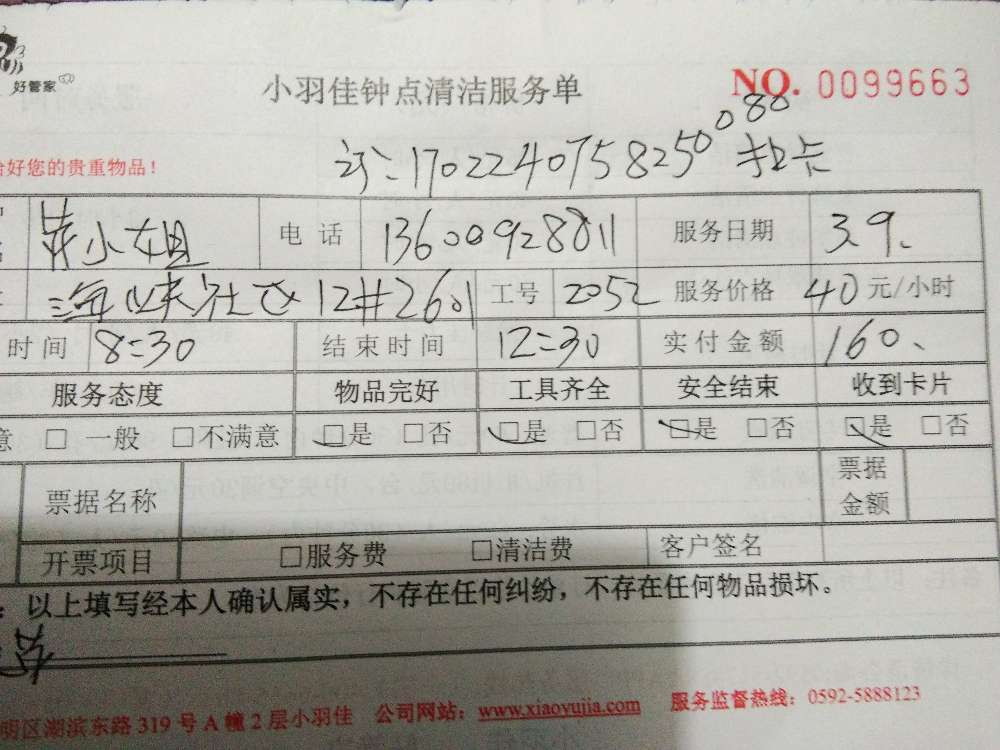 好管家
小羽佳钟点清洁服务单 NO. 0099663
1702240758250080 扣卡
好您的贵重物品！
小姐 电话 13600928811 服务日期 3.9.
海峡社区12#2601 工号 2052 服务价格 40元/小时
时间 8:30 结束时间 12:30 实付金额 160.
服务态度 物品完好 工具齐全 安全结束 收到卡片
意 □ 一般 □不满意 □是 □否 □是 □否 □是 □否 □是 □否
票据名称 票据金额
开票项目 □服务费 □清洁费 客户签名
：以上填写经本人确认属实，不存在任何纠纷，不存在任何物品损坏。
明区湖滨东路319号A幢2层小羽佳 公司网站：www.xiaoyujia.com 服务监督热线：0592-5888123